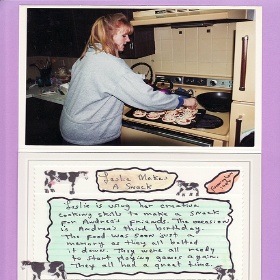 Leslie Makes
A Snack
Leslie is using her creative
cooking skills to make a snack
for Andrea's friends. The occasion
is Andrea's third birthday.
The food was soon just a
memory as they all bolted
it down. They were all ready
to start playing games again.
They all had a great time.